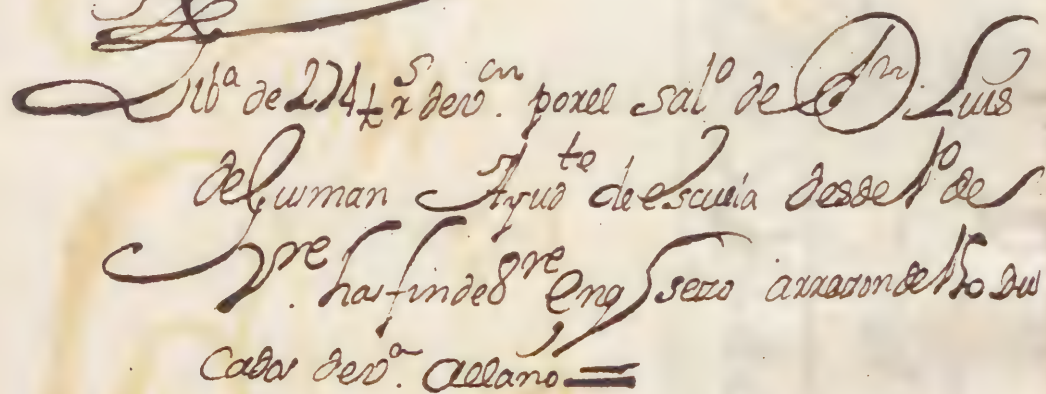 Libª de 274½ rˢ de vᵒⁿ. por el salº de Dⁿ Luis
de Guzman Ayudᵗᵉ de escuela desde 1º de
7ʳᵉ. has fin de 8ʳᵉ en q sezezo arrazon de 150 du
cados de vⁿ. al año =